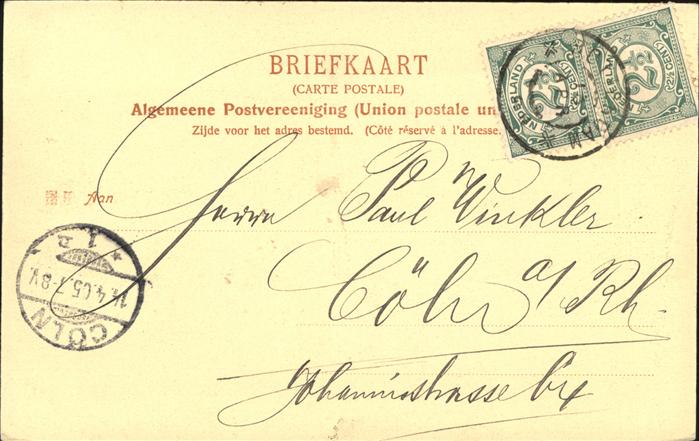 BRIEFKAART
(CARTE POSTALE)
Algemeene Postvereeniging (Union postale un
Zijde voor het adres bestemd. (Côté réservé à l'adresse.
Aan
Herrn Paul Winkler
Cöln a/Rh.
Johannisstrasse 64
CÖLN
14.4.05.7-8V.
1 a
NEDERLAND
2½
CENT
2½
CENT